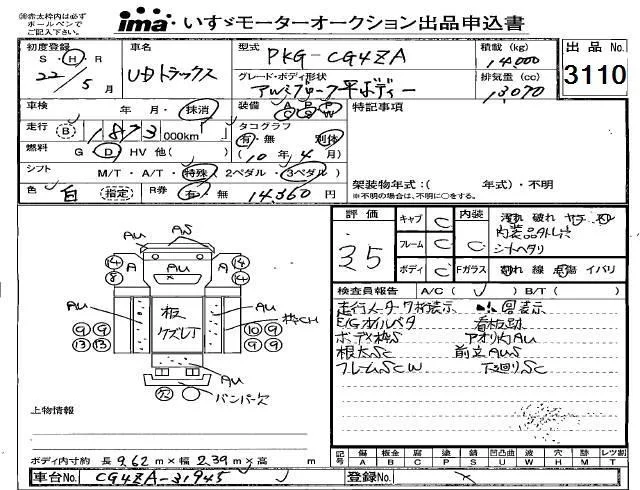 ※赤太枠内は必ず
ボールペンで
ご記入下さい。
ima いすゞモーターオークション出品申込書
初度登録 S H R 22/5月
車名 UDトラックス
型式 PKG-CG4ZA
積載 (kg) 14,000
出品No. 3110
グレード・ボディ形状 アルミブロック平ボディー
排気量 (cc) 13,070
車検 年 月・抹消
装備 A C P S P W
特記事項
走行 (B) 1873 000km
タコグラフ 有・無 別体
燃料 G D HV 他( )
(10年4月)
シフト M/T・A/T・特殊 2ペダル・3ペダル
架装物年式:( 年式)・不明
※不明の場合は、不明に○をする。
色 白 指定 R券 有・無 14,360円
評価 3.5
キャブ C
フレーム C
ボディ C
内装 C
汚れ 破れ ヤケ
内装品外し穴
シートヘタリ
Fガラス 割れ 線 点傷 イバリ
検査員報告 A/C( ✓ ) B/T( )
走行メーター7桁表示
E/Gオイルベタ
ボデー枠S
根太SC
フレームSCW
回表示
看板跡
アオリ穴AU
前立AUS
下回りSC
AU AS
14 8 A AU A 14 14
AU 板クズレT AU 枠CH
9 9 13 13
10 9 9 9
AU
欠 バンパー欠
上物情報
ボディ内寸約 長9.62m×幅2.39m×高 m
記号 傷A 板金B 腐C 凹P 錆S 凹凸曲U 波W 穴H 跡M レツ割T
車台No. CG4ZA-31945
登録No.